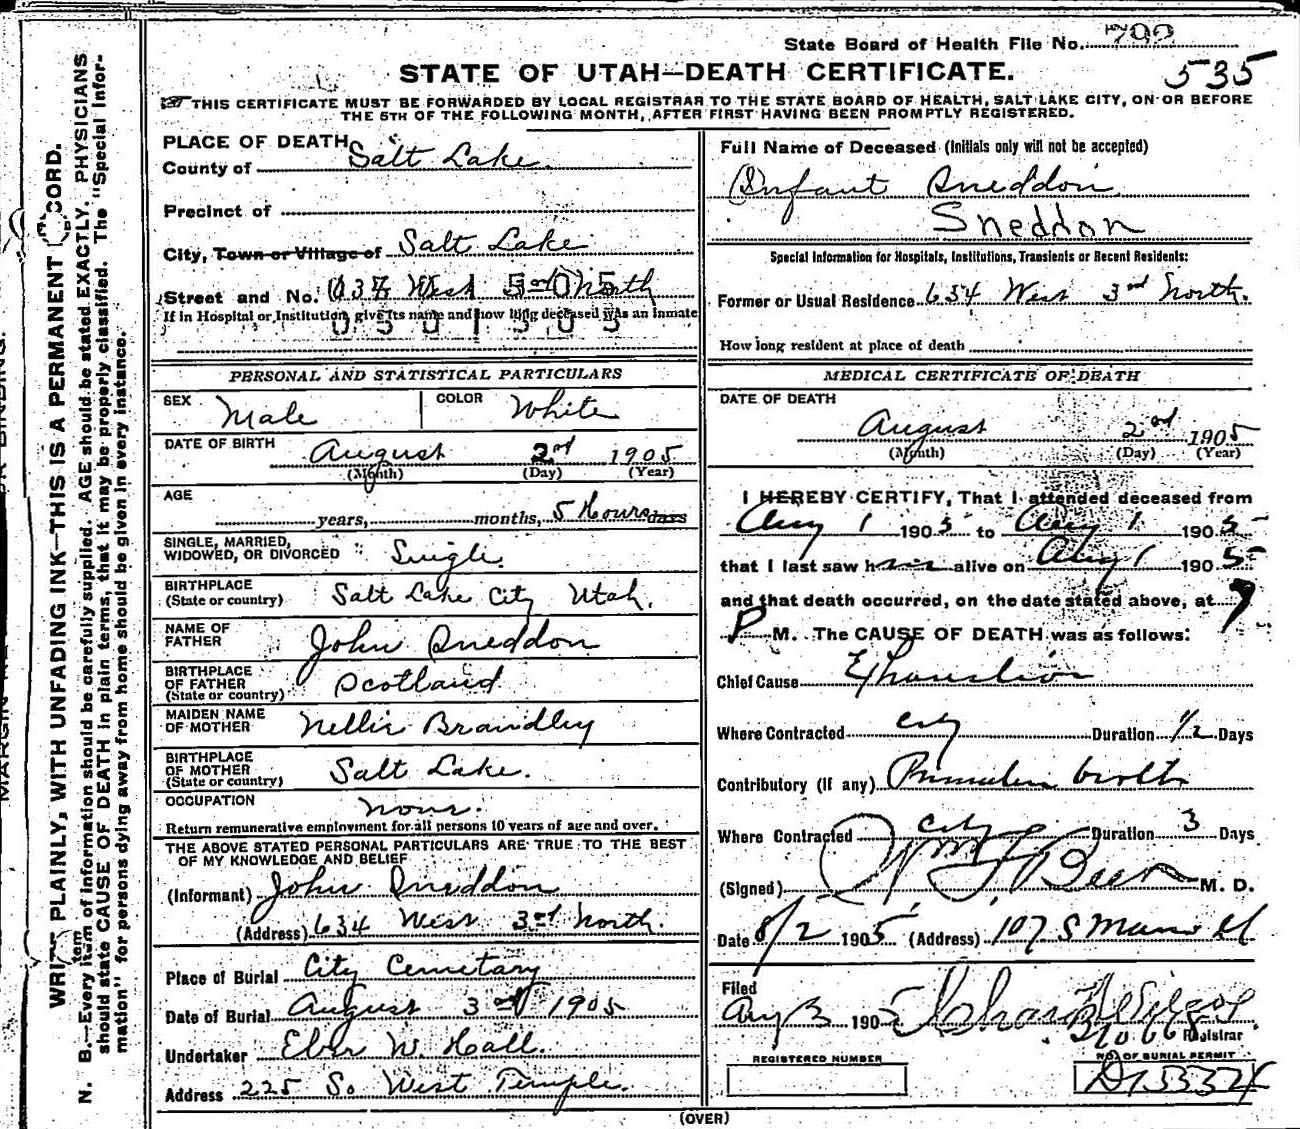 State Board of Health File No. 792
535
STATE OF UTAH—DEATH CERTIFICATE.
THIS CERTIFICATE MUST BE FORWARDED BY LOCAL REGISTRAR TO THE STATE BOARD OF HEALTH, SALT LAKE CITY, ON OR BEFORE
THE 5TH OF THE FOLLOWING MONTH, AFTER FIRST HAVING BEEN PROMPTLY REGISTERED.
PLACE OF DEATH
County of Salt Lake
Precinct of
City, Town or Village of Salt Lake
Street and No. West North
If in Hospital or Institution, give its name and how long deceased was an inmate
0501505
PERSONAL AND STATISTICAL PARTICULARS
SEX Male COLOR White
DATE OF BIRTH August 2nd 1905
(Month) (Day) (Year)
AGE years, months, 5 Hours days
SINGLE, MARRIED,
WIDOWED, OR DIVORCED Single.
BIRTHPLACE
(State or country) Salt Lake City Utah.
NAME OF
FATHER John Sneddon
BIRTHPLACE
OF FATHER
(State or country) Scotland
MAIDEN NAME
OF MOTHER Nellie Brandley
BIRTHPLACE
OF MOTHER
(State or country) Salt Lake.
OCCUPATION none.
Return remunerative employment for all persons 10 years of age and over.
THE ABOVE STATED PERSONAL PARTICULARS ARE TRUE TO THE BEST
OF MY KNOWLEDGE AND BELIEF
(Informant) John Sneddon
(Address) 634 West 3rd North.
Place of Burial City Cemetary
Date of Burial August 3rd 1905
Undertaker Eber W. Hall.
Address 225 So West Temple.
Full Name of Deceased (Initials only will not be accepted)
Infant Sneddon
Sneddon
Special Information for Hospitals, Institutions, Transients or Recent Residents:
Former or Usual Residence 634 West 3rd North.
How long resident at place of death
MEDICAL CERTIFICATE OF DEATH
DATE OF DEATH
August 2nd 1905
(Month) (Day) (Year)
I HEREBY CERTIFY, That I attended deceased from
Aug 1 1905 to Aug 1 1905
that I last saw him alive on Aug 1 1905
and that death occurred, on the date stated above, at 7
P M. The CAUSE OF DEATH was as follows:
Chief Cause Exhaustion
Where Contracted city Duration 1/2 Days
Contributory (if any) Premature birth
Where Contracted city Duration 3 Days
(Signed) Wm F Beer M. D.
Date 8/2 1905 (Address) 107 S Main St
Filed
Aug 3 1905
Registrar
REGISTERED NUMBER
NO. OF BURIAL PERMIT
D15332
(OVER)
WRITE PLAINLY, WITH UNFADING INK—THIS IS A PERMANENT RECORD.
N. B.—Every item of information should be carefully supplied. AGE should be stated EXACTLY. PHYSICIANS
should state CAUSE OF DEATH in plain terms, that it may be properly classified. The "Special Infor-
mation" for persons dying away from home should be given in every instance.